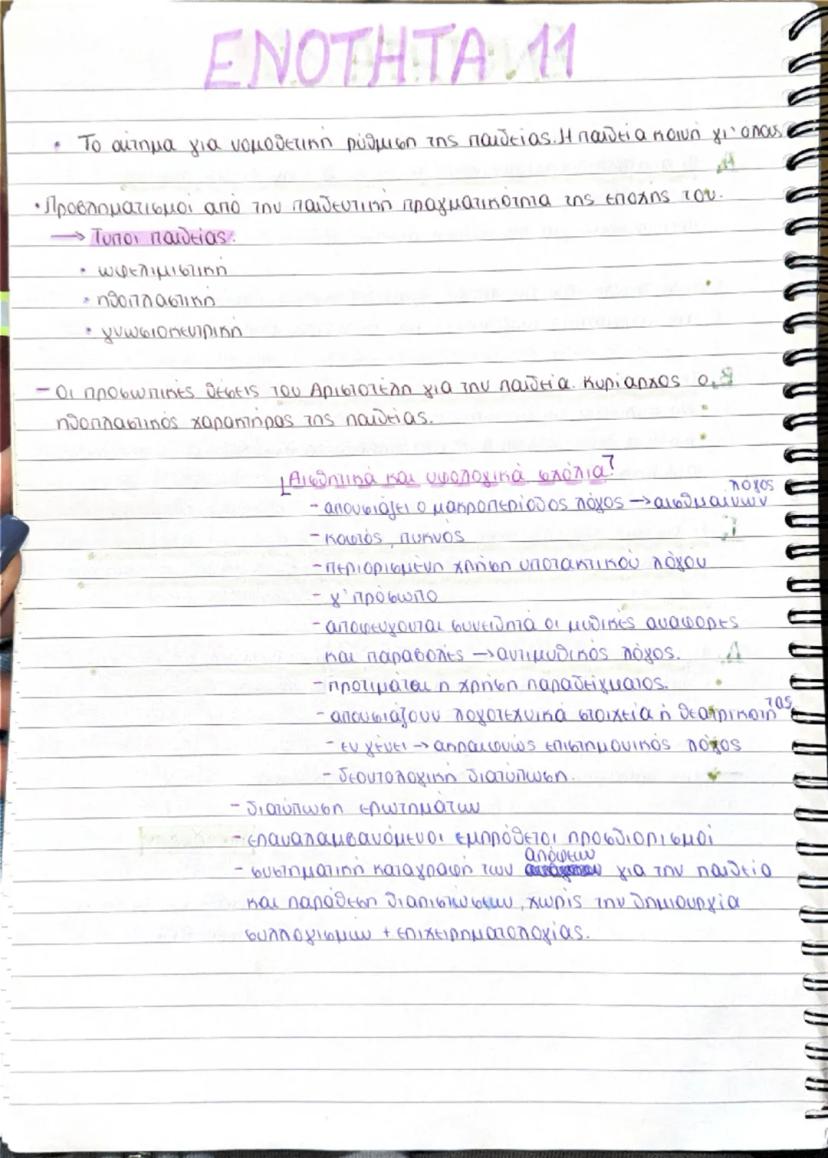 ΕΝΟΤΗΤΑ 11
• Το αίτημα για νομοθετική ρύθμιση της παιδείας. Η παιδεία κοινή γι' όλους
• Προβληματισμοί από την παιδευτική πραγματικότητα της εποχής του.
→ Τύποι παιδείας:
• ωφελιμιστική
• ηθοπλαστική
• γνωσιοκεντρική
- Οι προσωπικές θέσεις του Αριστοτέλη για την παιδεία. Κυρίαρχος ο
ηθοπλαστικός χαρακτήρας της παιδείας.
Αισθητικά και υφολογικά σχόλια?
- απουσιάζει ο μακροπερίοδος λόγος → ασθμαίνων λόγος
- κοφτός, πυκνός
- περιορισμένη χρήση υποτακτικού λόγου
- γ' πρόσωπο
- αποφεύγονται συνειδητά οι μυθικές αναφορές
και παραβολές → αντιμυθικός λόγος.
- προτιμάται η χρήση παραδείγματος.
- απουσιάζουν λογοτεχνικά στοιχεία ή θεατρικότητας
- εν γένει → ακραιφνώς επιστημονικός λόγος
- δεοντολογική διατύπωση.
- διατύπωση ερωτημάτων
- επαναλαμβανόμενοι εμπρόθετοι προσδιορισμοί
- συστηματική καταγραφή των απόψεων για την παιδεία
και παράθεση διαπιστώσεων, χωρίς την δημιουργία
συλλογισμών + επιχειρηματολογίας.